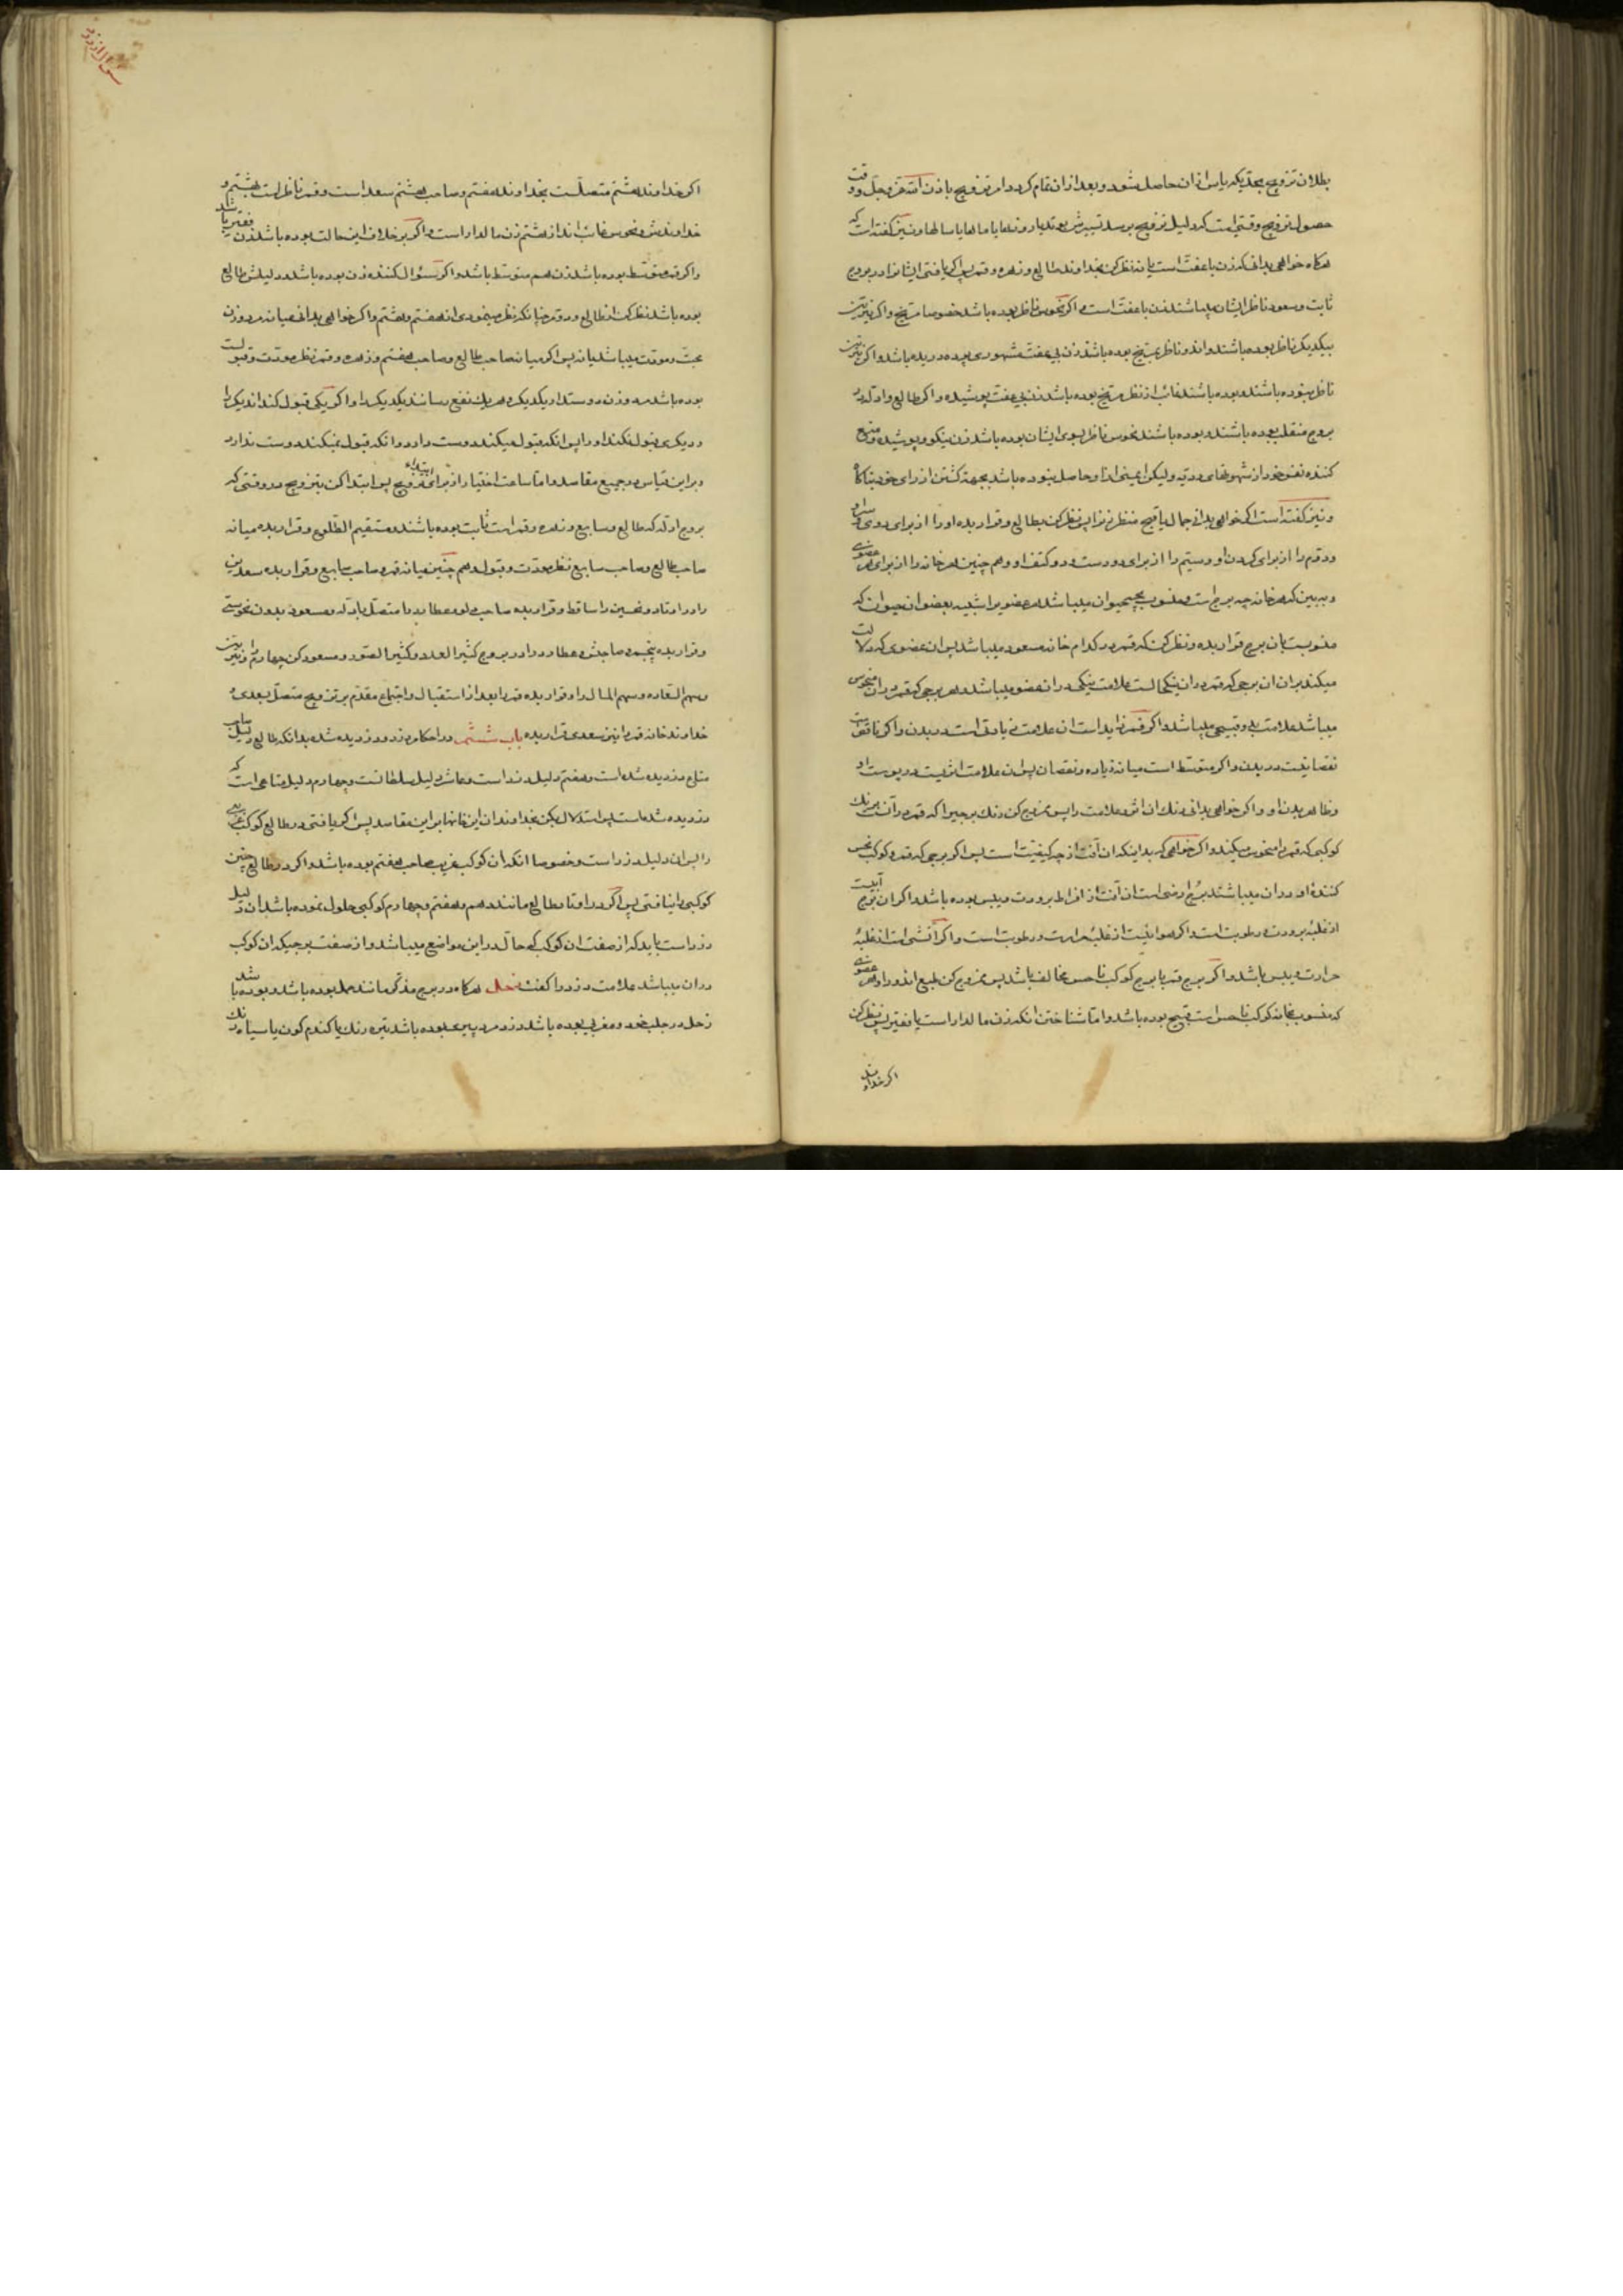 بطلان تزویج بحدیکه یاس ازان حاصل شود و بعد ازان تمام کردد امر تزویج باذن الله عز و جل و وقت
حصول تزویج وقتی است که دلیل تزویج برسد تسییرش یا سالها و نیز کفته است که
هرکاه خواهی بدانی که زن با عفت است یا نه نظر کن بخداوند طالع و زهره و قمر پس اکر یافتی ایشانرا در بروج
ثابت و سعود ناظر ایشان میباشند زن با عفت است و اکر نحوس ناظر بوده باشد خصوصا مریخ و اکر نیرین
بیکدیکر ناظر بوده باشند و ناظر مریخ بوده باشد زن بی عفت مشهوری بوده دریده باشد و اکر نیرین
ناظر نبوده باشند بوده باشند غائب از نظر مریخ بوده باشد زن بی عفت پوشیده و اکر طالع و ادله در
بروج منقلب بوده باشند و بوده باشند نحوس ناظر بسوی ایشان بوده باشد زن نیکو و پوشیده و منع
کننده نفس خود از شهوتهای ردیه ولیکن این معنی اورا حاصل نبوده باشد بجهة کشتن از رای خود بناکاه
و نیز کفته است اکر خواهی بدانی جمال یا قبح منظر زنرا پس نظر کن بطالع و قرار بده اورا از برای روی و سر او
و دوم را از برای کردن او و سیم را از برای دو دست و دو کتف او و هم چنین هر خانه را از برای هر عضوی
و ببین که هر خانه چه برج است و منسوب بچه حیوان میباشد هر عضویرا شبیه بعضو ان حیوان که
منسوبست بان برج قرار بده و نظر کن که قمر در کدام خانه مسعود میباشد پس ان عضوی که دلالت
میکند بران ان برجی که قمر در ان نیکحالست علامت نیکی در ان عضو میباشد و هر برجی که قمر در ان منحوس
میباشد علامت بد و قبیحی میباشد و اکر قمر زاید است ان علامت زیادتی است در بدن و اکر ناقص است
نقصانیست در بدن و اکر متوسط است میانه زیاده و نقصان پس ان علامت اثریست در پوست او
و ظاهر بدن او و اکر خواهی بدانی رنک ان اثر و علامت را پس ممزوج کن رنک برجیرا که قمر در انست برنک
کوکبی که قمر را منحوس میکند و اکر خواهی که بداینکه ان آفت از چه کیفیت است پس اکر برجی که قمر و کوکب نحس
کننده او در ان میباشند برج ارضی است ان آفت از افراط برودت و یبس بوده باشد و اکر ان برج آبیست
از غلبه برودت و رطوبت است و اکر هوائیست از غلبه حرارت و رطوبت است و اکر آتشی است از غلبه
حرارت و یبس باشد و اکر برج قمر با برج کوکب ناحس مخالف باشد پس ممزوج کن طبع اندو را و هر عضوی
که منسوب بخانه کوکب ناحس است قبیح بوده باشد و اما شناختن انکه زن مالدار است یا فقیر پس نظر کن
اکر خداوند
سؤال از دزد
اکر خداوند هشتم متصلست بخداوند هفتم و صاحب هشتم سعد است و قمر ناظر است بهشتم و
خداوندش و نحوس غائب اند از هشتم زن مالدار است و اکر بر خلاف این حالت بوده باشد زن فقیر باشد
و اکر قمر متوسط بوده باشد زن هم متوسط باشد و اکر سؤال کننده زن بوده باشد و دلیلش طالع
بوده باشد نظر کن از طالع و دوم چنانکه نظر مینمودی از هفتم و هشتم و اکر خواهی بدانی میان مرد و زن
محبت و موقت میباشد یا نه پس اکر میانه صاحب طالع و صاحب هفتم و زهره و قمر نظر مودت و قبولست
بوده باشد مرد و زن دوستدار یکدیکر و هر یک نفع رسانند یکدیکر را و اکر یکی قبول کند اندیکر را
و دیکری قبول نکند او را پس انکه قبول میکند دوست دارد و انکه قبول نمیکند دوست ندارد
و بر این قیاس در جمیع مقاصد و اما ساعت اختیار از برای ابتداء تزویج پس ابتدا کن بتزویج در وقتی که
بروج ادله که طالع و سابع و زهره و قمر است ثابت بوده باشند و مستقیم الطلوع و قرار بده میانه
صاحب طالع و صاحب سابع نظر مودت و قبول و هم چنین میانه قمر و صاحب سابع و قرار بده سعدین
را در اوتاد و نحسین را ساقط و قرار بده صاحب و عطارد را متصل بادله و مسعود بدون نحوستی
و قرار بده پنجم و صاحبش و عطارد را در بروج کثیر العدد و کثیر الصور و مسعود کن چهارم را و نیرین
و سهم السعاده و سهم المال را و قرار بده قمر را بعد از استقبال و اجتماع مقدم بر تزویج متصل بسعدی و
خداوند خانه قمر را نیز سعدی قرار بده باب ششم در احکام دزد و دزدیده شده بدانکه طالع دلیل صاحب
متاع دزدیده شده است و هفتم دلیل دزد است و عاشر دلیل سلطانست و چهارم دلیل متاعی است که
دزدیده شده است پس استدلال بکن بخداوندان این خانها بر این مقاصد پس اکر یافتی در طالع کوکب غریبی
را پس ان دلیل دزد است و خصوصا انکه ان کوکب غریب صاحب هفتم بوده باشد و اکر در طالع چنین
کوکبی را نیافتی پس اکر در اوتاد طالع مانند دهم و هفتم و چهارم کوکبی حلول نموده باشد ان دلیل
دزد است باید که از صفت ان کوکب که حال در این مواضع میباشد و از صفت برجیکه ان کوکب
در ان میباشد علامت دزد را کفت زحل هرکاه در برج مذکر مانند حمل بوده باشد و بوده باشد
زحل در جلب خود و مغربی بوده باشد دزد مرد پیر بوده باشد تیره رنک یا کندم کون یا سیاه رنک